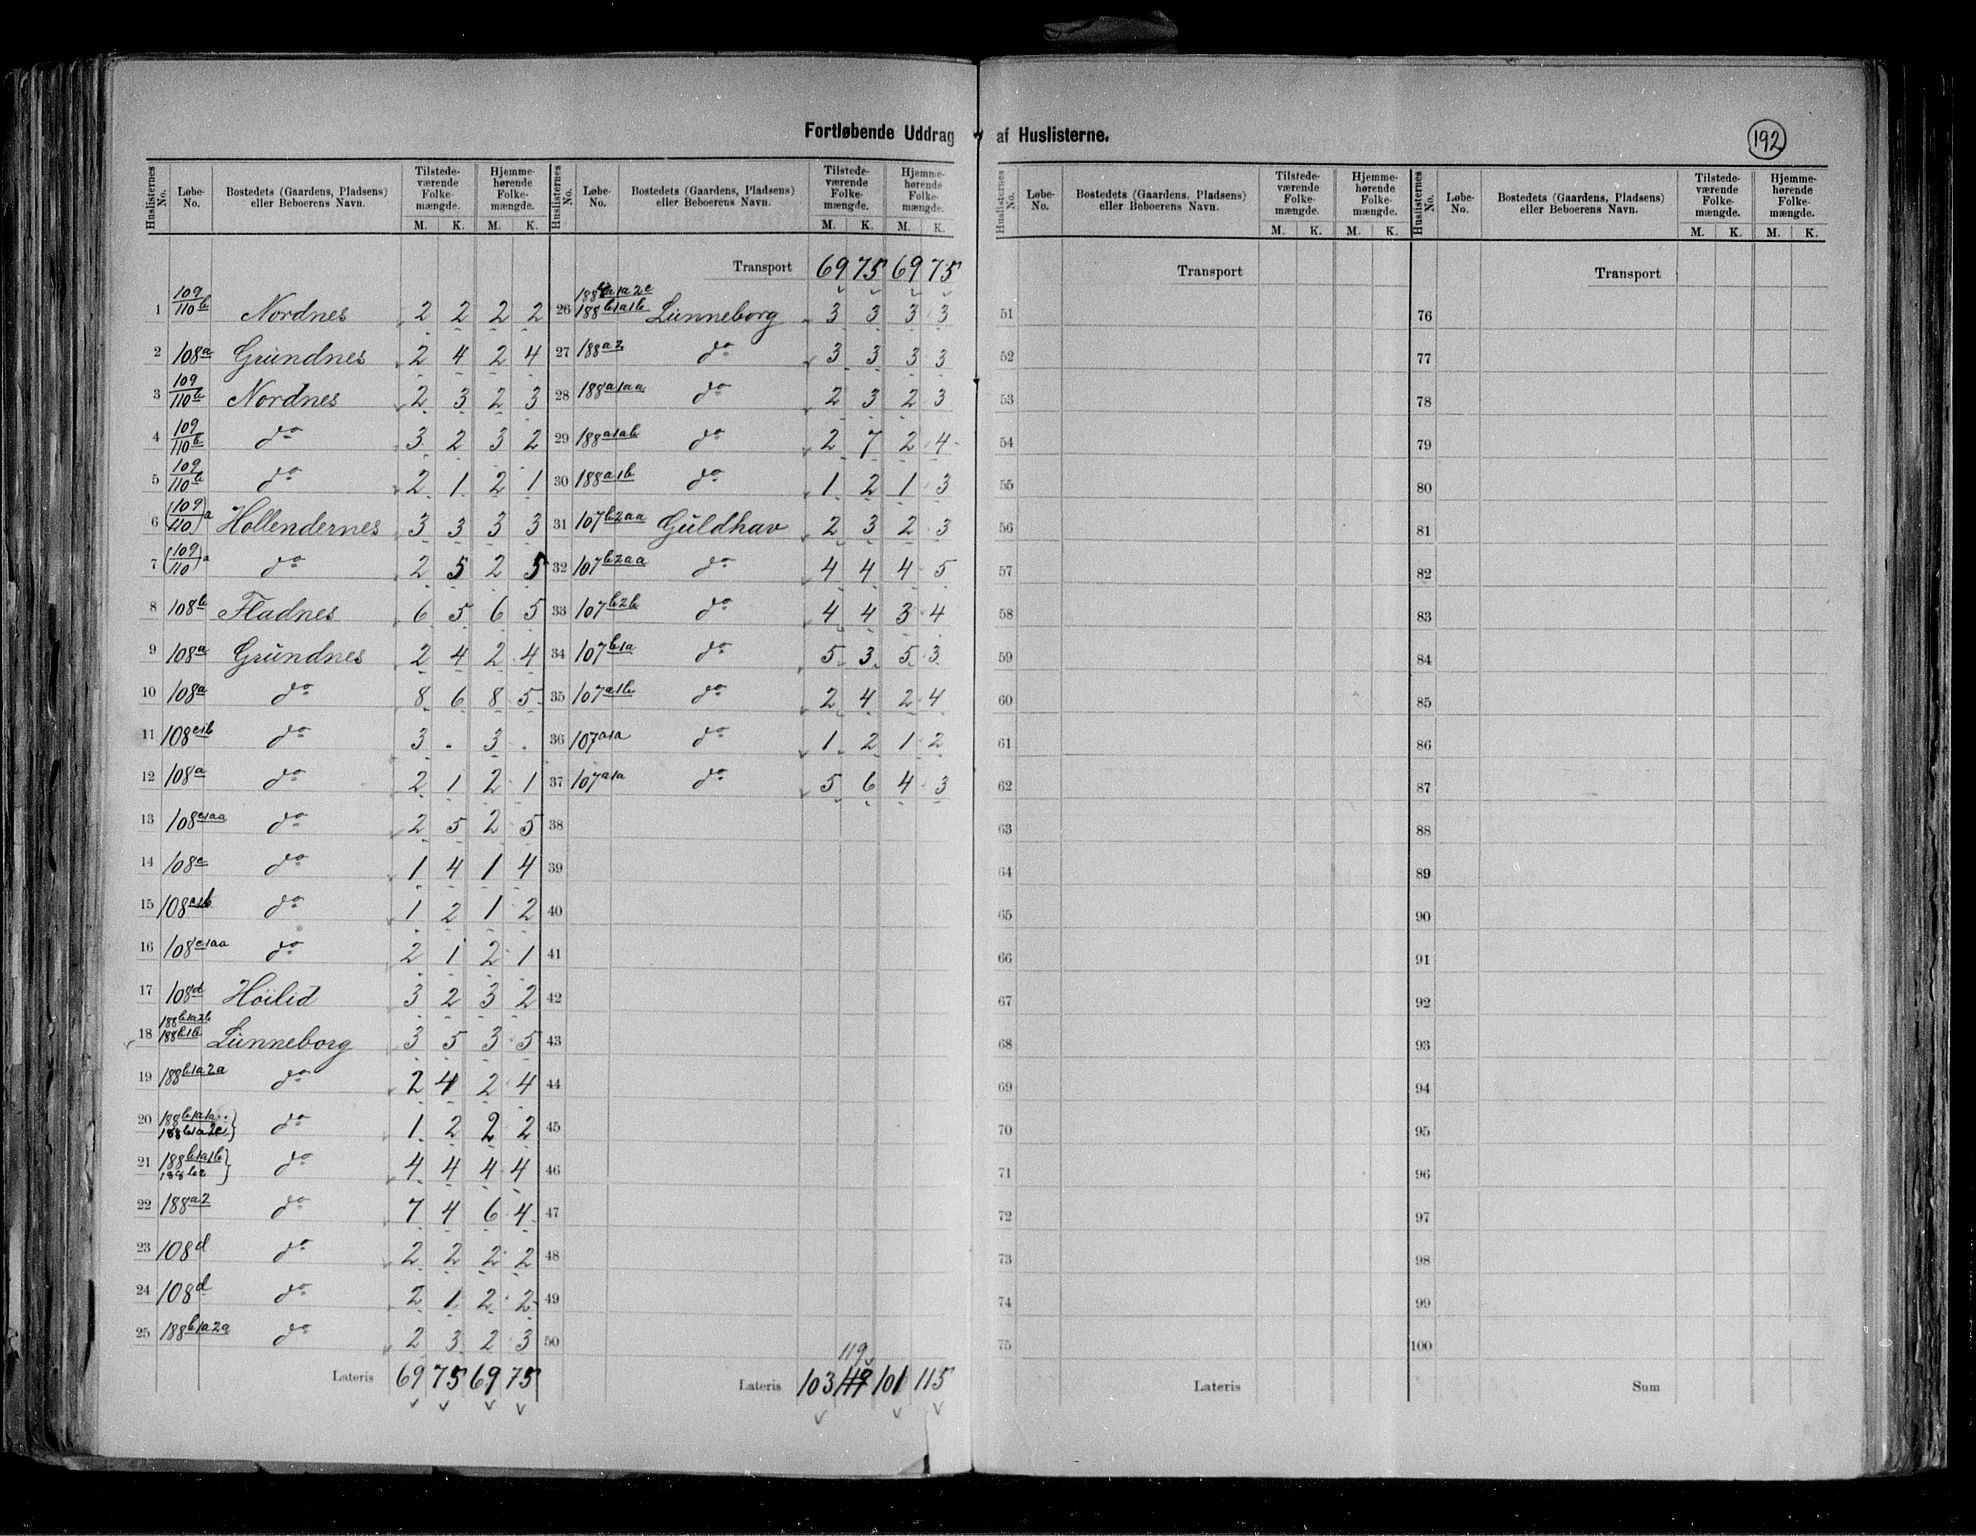 Fortløbende Uddrag af Huslisterne.
192
Huslisternes No. Løbe-No. Bostedets (Gaardens, Pladsens) eller Beboerens Navn. Tilstedeværende Folkemængde. M. K. Hjemmehørende Folkemængde. M. K.
1 109/110b Nordnes 2 2 2 2
2 108a Grundnes 2 4 2 4
3 109/110b Nordnes 2 3 2 3
4 109/110b do 3 2 3 2
5 109/110b do 2 1 2 1
6 (109/110)a Hollendernes 3 3 3 3
7 (109/110)a do 2 5 2 5
8 108b Fladnes 6 5 6 5
9 108a Grundnes 2 4 2 4
10 108a do 8 6 8 5
11 108c1b do 3 . 3 .
12 108a do 2 1 2 1
13 108c1aa do 2 5 2 5
14 108c do 1 4 1 4
15 108c1b do 1 2 1 2
16 108c1aa do 2 1 2 1
17 108d Höilid 3 2 3 2
18 188b1a2b 188b1b Lunneborg 3 5 3 5
19 188b1a2a do 2 4 2 4
20 188b1a1a 188b1a2c } do 1 2 2 2
21 188b1a1b 188b2 } do 4 4 4 4
22 188a2 do 7 4 6 4
23 108d do 2 2 2 2
24 108d do 2 1 2 2
25 188b1a2a do 2 3 2 3
Lateris 69 75 69 75
Huslisternes No. Løbe-No. Bostedets (Gaardens, Pladsens) eller Beboerens Navn. Tilstedeværende Folkemængde. M. K. Hjemmehørende Folkemængde. M. K.
Transport 69 75 69 75
26 188b1a2c 188b1a1b Lunneborg 3 3 3 3
27 188a2 do 3 3 3 3
28 188a1aa do 2 3 2 3
29 188a1ab do 2 7 2 4
30 188a1b do 1 2 1 3
31 107b2aa Guldhav 2 3 2 3
32 107b2aa do 4 4 4 5
33 107b2b do 4 4 3 4
34 107b1a do 5 3 5 3
35 107a1b do 2 4 2 4
36 107a1a do 1 2 1 2
37 107a1a do 5 6 4 3
38
39
40
41
42
43
44
45
46
47
48
49
50
119
Lateris 103 101 115
Huslisternes No. Løbe-No. Bostedets (Gaardens, Pladsens) eller Beboerens Navn. Tilstedeværende Folkemængde. M. K. Hjemmehørende Folkemængde. M. K.
Transport
51
52
53
54
55
56
57
58
59
60
61
62
63
64
65
66
67
68
69
70
71
72
73
74
75
Lateris
Huslisternes No. Løbe-No. Bostedets (Gaardens, Pladsens) eller Beboerens Navn. Tilstedeværende Folkemængde. M. K. Hjemmehørende Folkemængde. M. K.
Transport
76
77
78
79
80
81
82
83
84
85
86
87
88
89
90
91
92
93
94
95
96
97
98
99
100
Sum